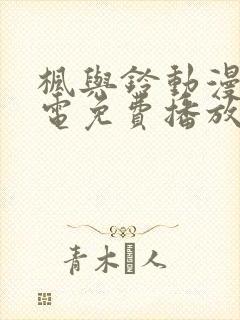 楓與鈴動漫
電免費播放
青木人